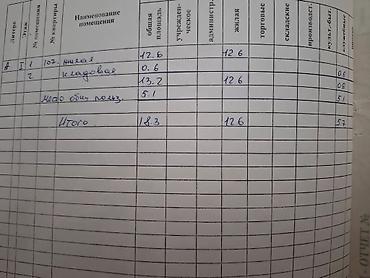 Литера Этаж № помещения № квартиры Наименование помещения общая площадь учрежденческое администр. жилая торговые складские производст. культ.-быт.
A I 1 107. жилая 12.6 12.6
2 кладовая 0.6 0.6
13.2 12.6 0.6
моп общ. польз. 5.1 5.1
Итого 18.3 12.6 5.7